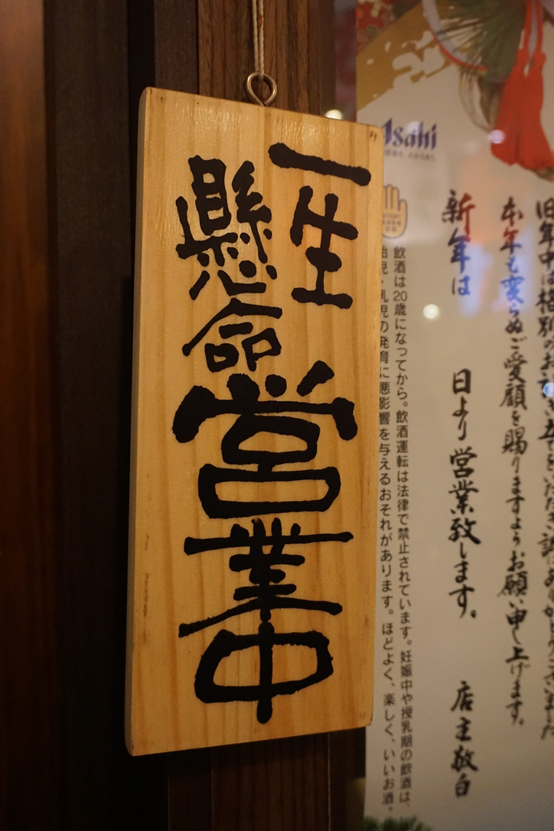 一生
懸命
営業中
Asahi
旧年中は格別のお
本年も変らぬご愛顧を賜りますようお願い申し上げます。
新年は 日より営業致します。 店主敬白
飲酒は20歳になってから。飲酒運転は法律で禁止されています。妊娠中や授乳期の飲酒は、
胎児・乳児の発育に悪影響を与えるおそれがあります。ほどよく、楽しく、いいお酒。